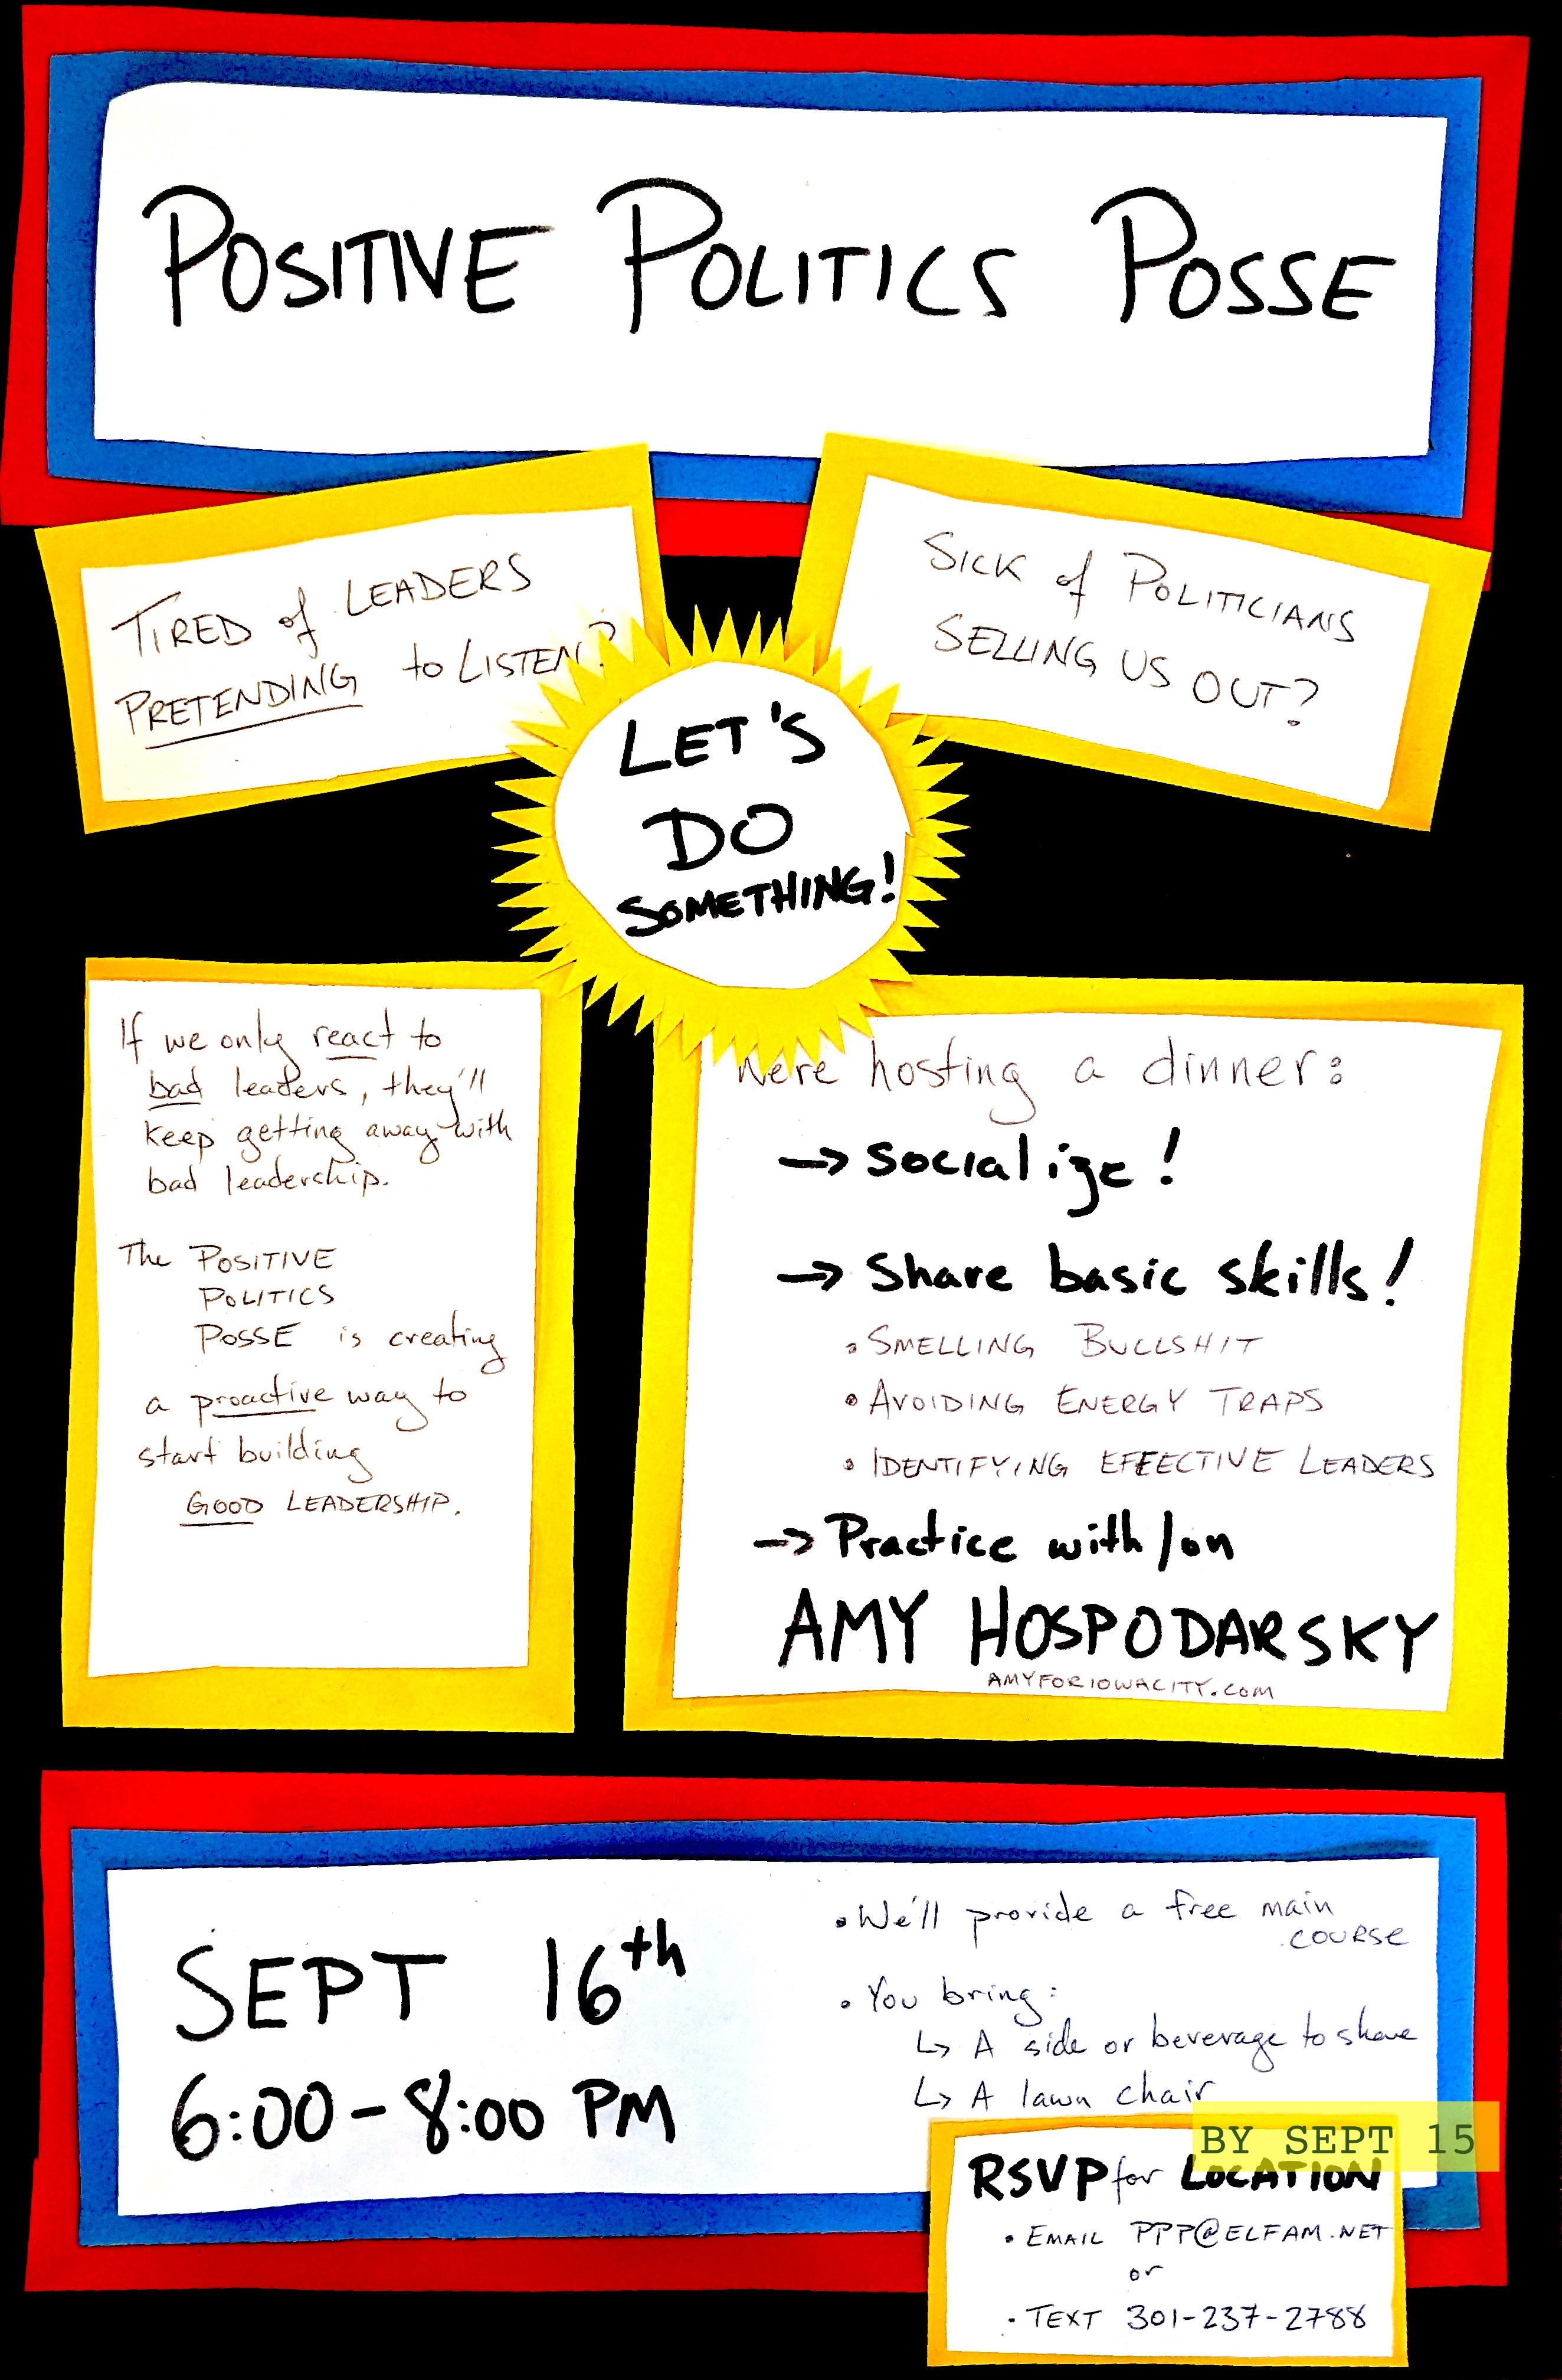 POSITIVE POLITICS POSSE
TIRED of LEADERS
PRETENDING to LISTEN?
SICK of POLITICIANS
SELLING US OUT?
LET'S
DO
SOMETHING!
If we only react to
bad leaders, they'll
keep getting away with
bad leadership.
The POSITIVE
POLITICS
POSSE is creating
a proactive way to
start building
GOOD LEADERSHIP.
We're hosting a dinner:
→ Socialize!
→ Share basic skills!
• SMELLING BULLSHIT
• AVOIDING ENERGY TRAPS
• IDENTIFYING EFFECTIVE LEADERS
→ Practice with/on
AMY HOSPODARSKY
AMYFORIOWACITY.COM
SEPT 16th
6:00-8:00 PM
• We'll provide a free main
COURSE
• You bring:
↳ A side or beverage to share
↳ A lawn chair
BY SEPT 15
RSVP for LOCATION
• EMAIL PPP@ELFAM.NET
or
• TEXT 301-237-2788